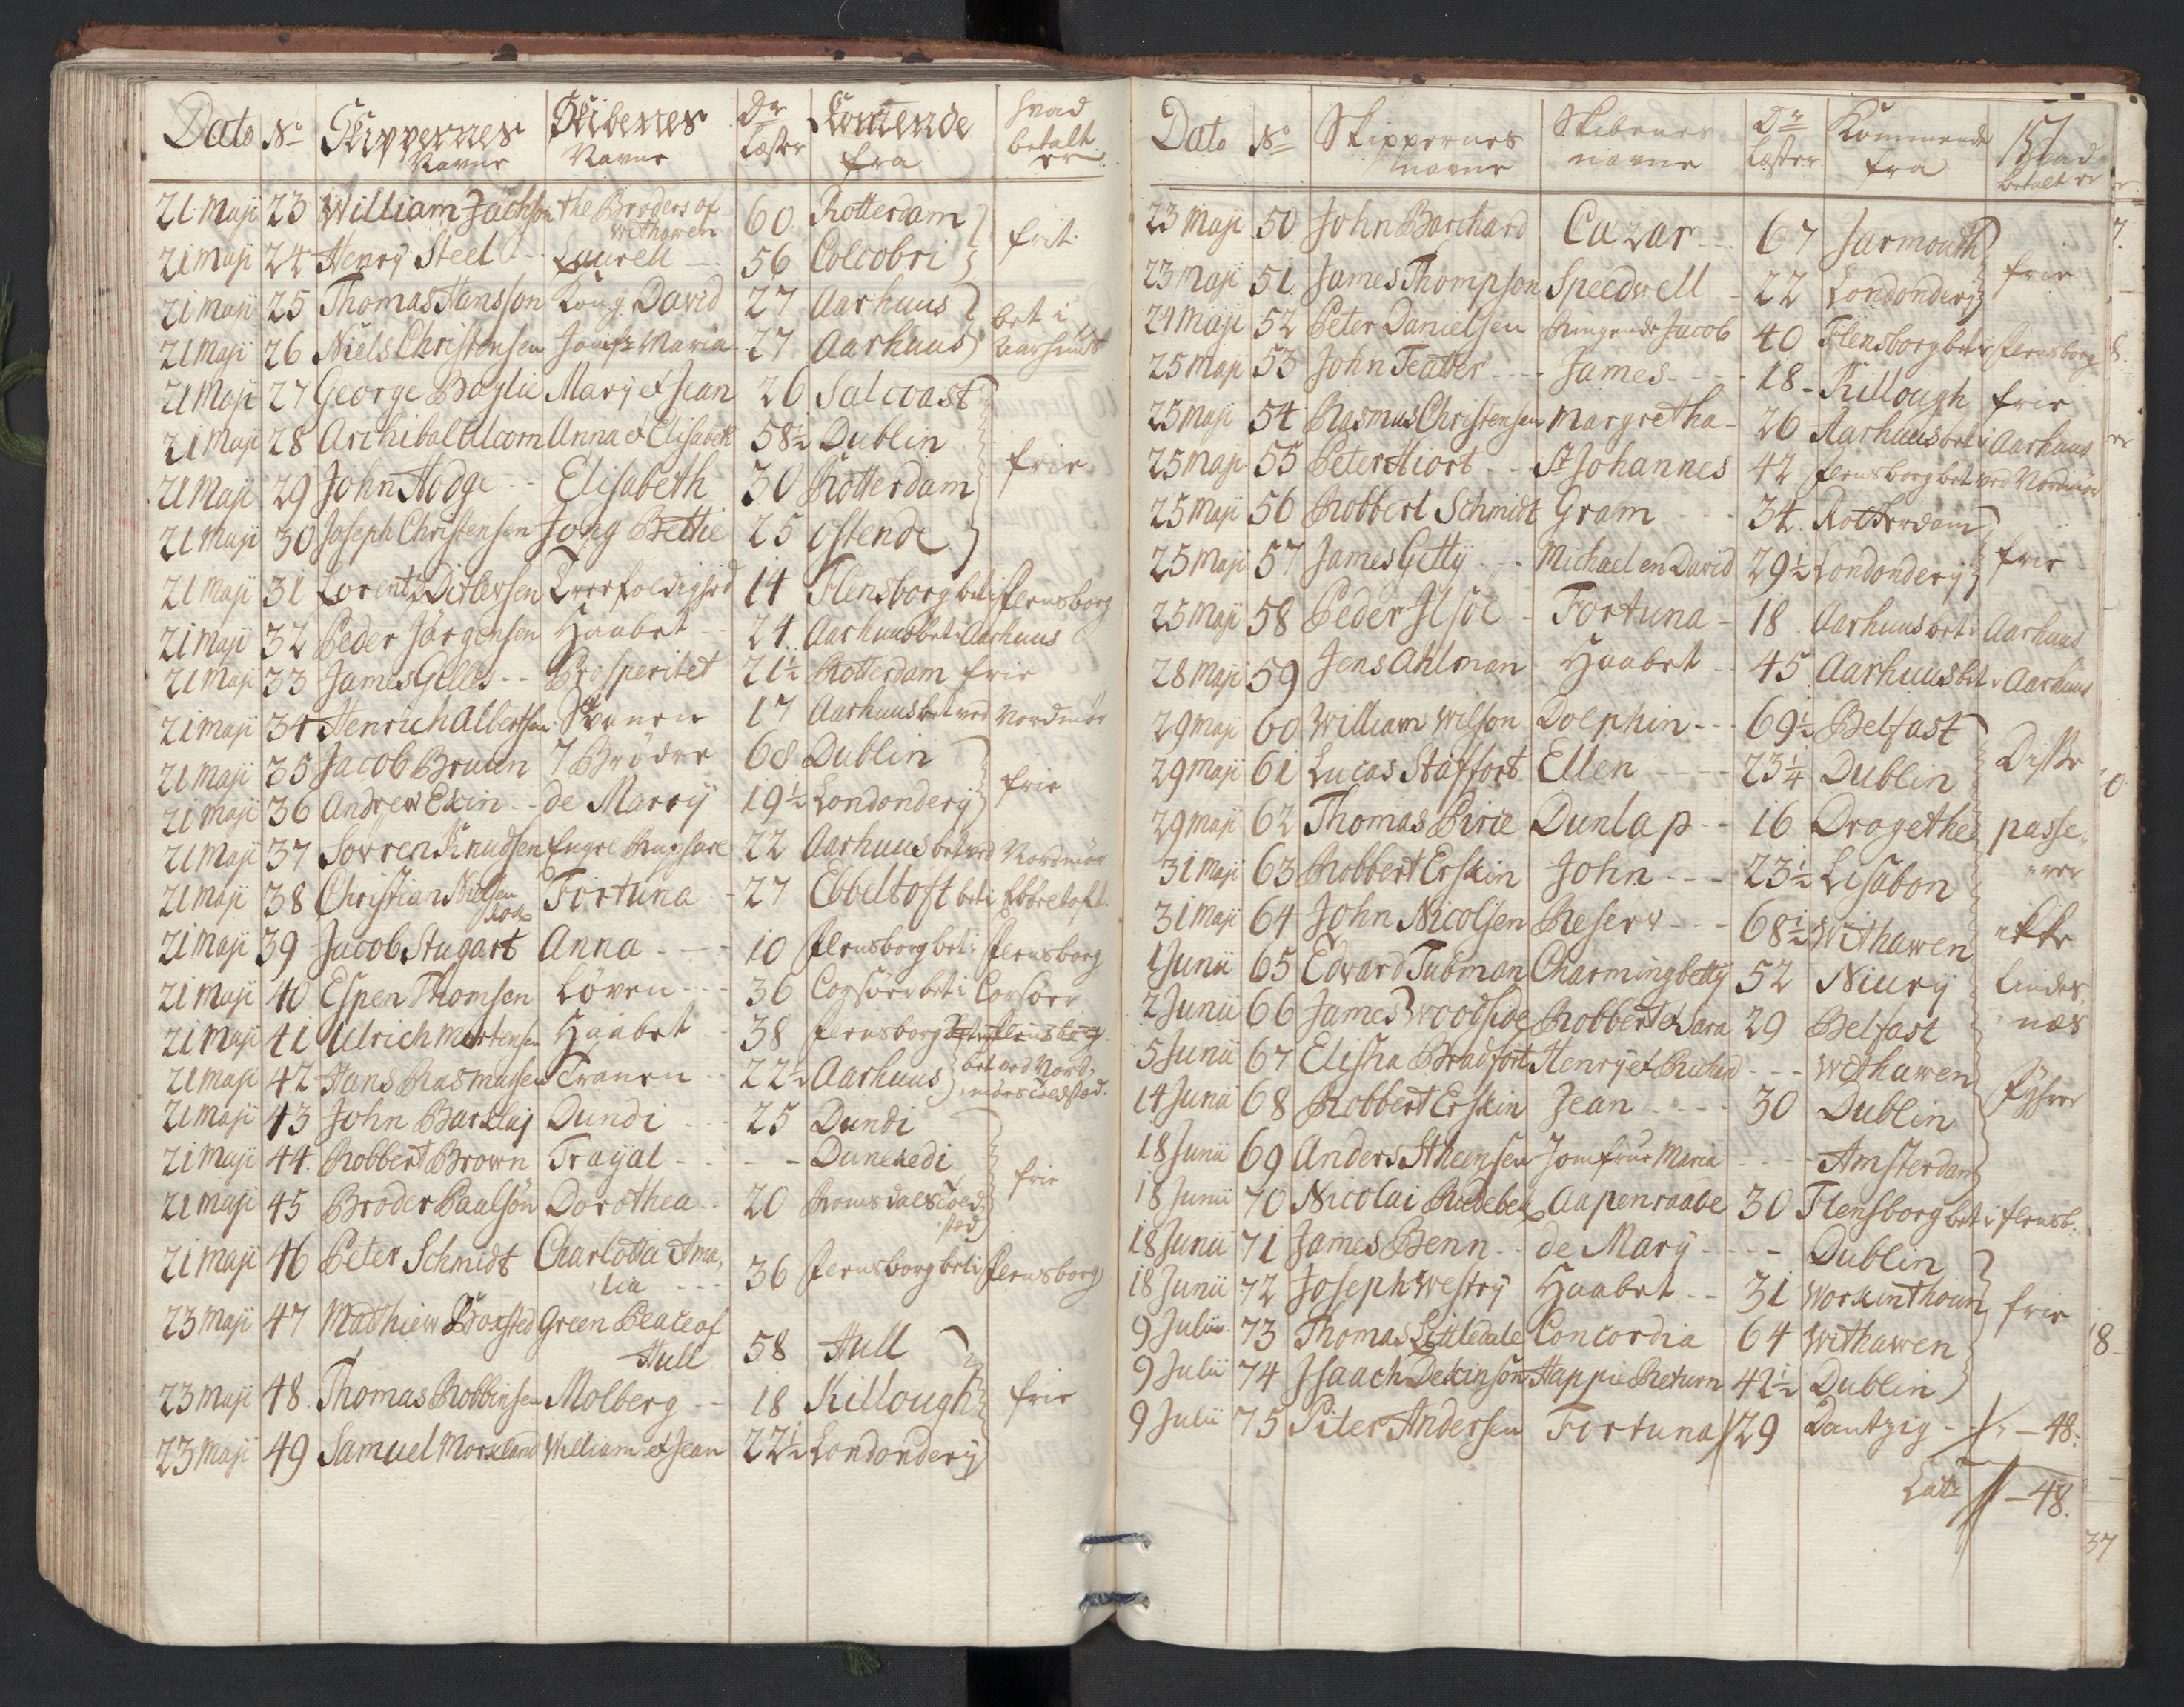 Dato No Skippernes Navne Skibenes Navne Dr Læster Komende fra hvad betalt er
21 Maji 23 William Jachson the Broders of Withawen 60 Rotterdam
21 Maji 24 Henry Steel Laurell 56 Colcobri frit
21 Maji 25 Thomas Hansson Kong David 27 Aarhuus
21 Maji 26 Niels Christensen Jomfr Maria 27 Aarhuus bet i Aarhuus
21 Maji 27 George Baylie Mary et Jean 26 Salcoast
21 Maji 28 Archibal Alcorn Anna et Elisabeth 58½ Dublin
21 Maji 29 John Hodge Elisabeth 30 Rotterdam frie
21 Maji 30 Joseph Christensen Jong Bettie 25 Ostende
21 Maji 31 Lorentz Ditlevsen 14 Flensborg bet i Flensborg
21 Maji 32 Peder Jørgensen Haabet 24 Aarhuus bet i Aarhuus
21 Maji 33 James Gelles Prosperitet 21½ Rotterdam frie
21 Maji 34 Henrich Albertsen Svanen 17 Aarhuus bet ved Nordmør
21 Maji 35 Jacob Bruun 7 Brødre 68 Dublin
21 Maji 36 Andrew Ekin de Marry 19½ Londondery frie
21 Maji 37 Søvren Knudsen Engel Raphael 22 Aarhuus bet ved Nordmør
21 Maji 38 Christian Nielsen Fortuna 27 Ebbeltoft bet i Ebbeltoft
21 Maji 39 Jacob Stugart Anna 10 Flensborg bet i Flensborg
21 Maji 40 Espen Thomsen Løven 36 Corsöer bet i Corsöer
21 Maji 41 Ulrich Mortensen Haabet 38 Flensborg bet i Flensborg
21 Maji 42 Hans Rasmussen Tranen 22½ Aarhuus bet ved Nordmørs toldsted
21 Maji 43 John Barklaj Dundi 25 Dundi
21 Maji 44 Robbert Brown Trayal - Dunekedi frie
21 Maji 45 Broder Paulsön Dorothea 20 Romsdals toldsted
21 Maji 46 Peter Schmidt Charlotta Ama,
lia 36 Flensborg bet i Flensborg
23 Maji 47 Mathiew Boxsted Green Peace of
Hull 58 Hull
23 Maji 48 Thomas Robbinsen Molberg 18 Killough frie
23 Maji 49 Samuel Morxland William et Jean 22½ Londondery
Dato No Skippernes navne Skibenes navne Dr Læster Kommende fra Hvad betalt er
23 Maji 50 John Barchard Cazar 67 Jarmouth
23 Maji 51 James Thompson Speedwell 22 Londondery frie
24 Maji 52 Peter Danielsen Ringende Jacob 40 Flensborg bet i Flensborg
25 Maji 53 John Teater James 18 Killough frie
25 Maji 54 Rasmus Christensen Margretha 26 Aarhuus bet i Aarhuus
25 Maji 55 Peter Hiort St Johannes 42 Flensborg bet ved Nordmør
25 Maji 56 Robbert Schmidt Gram 34 Rotterdam
25 Maji 57 James Getty Michael en David 29½ Londondery frie
25 Maji 58 Peder Ilsøe Fortuna 18 Aarhuus bet i Aarhuus
28 Maji 59 Jens Ahlman Haabet 45 Aarhuus bet i Aarhuus
29 Maji 60 William Wilson Dolphin 69½ Belfast
29 Maji 61 Lucas Staffort Ellen 23¼ Dublin Disse
29 Maji 62 Thomas Pirie Dunlap 16 Drogethea passe,
31 Maji 63 Robbert Erskin John 23½ Lisabon rer
31 Maji 64 John Nicolsen Reserv 68½ Withawen ikke
1 Junii 65 Edvard Tubman Charming betty 52 Niury Lindes,
2 Junii 66 James Woodside Robbert et Sara 29 Belfast næs
5 Junii 67 Elisha Bradfort Henry et Richard - Withawen
14 Junii 68 Robbert Erskin Jean 30 Dublin Fyhrer
18 Junii 69 Anders Stheensen Jomfrue Maria - Amsterdam
18 Junii 70 Nicolai Rudebek Aapenraabe 30 Flensborg bet i Flensb.
18 Junii 71 James Benn de Mary - Dublin
18 Junii 72 Joseph Westry Haabet 31 Workinthoun frie
9 Julii 73 Thomas Littledale Concordia 64 Withawen
9 Julii 74 Isaach Dekinson Happie Return 42½ Dublin
9 Julii 75 Piter Andersen Fortuna 29 Dantzig 1 - 48.
Lat 1 - 48.
37